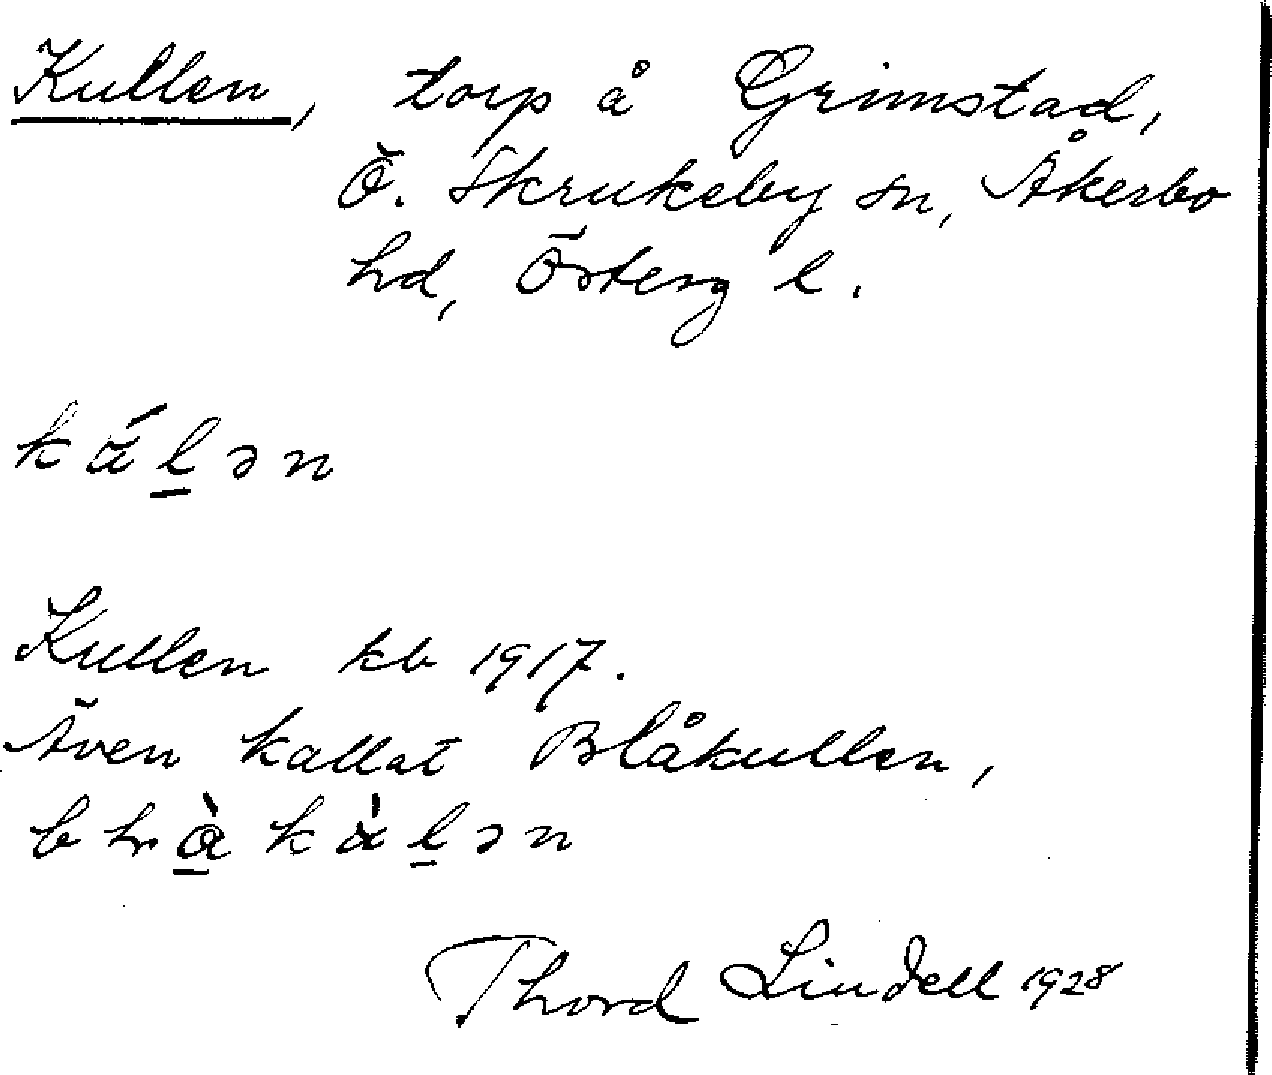 Kullen, torp å Grimstad,
Ö. Skrukeby sn, Åkerbo
hd, Österg l.
ká̵l̲ən
Kullen kb 1917.
Även kallat Blåkullen,
Thord Lindell 1928